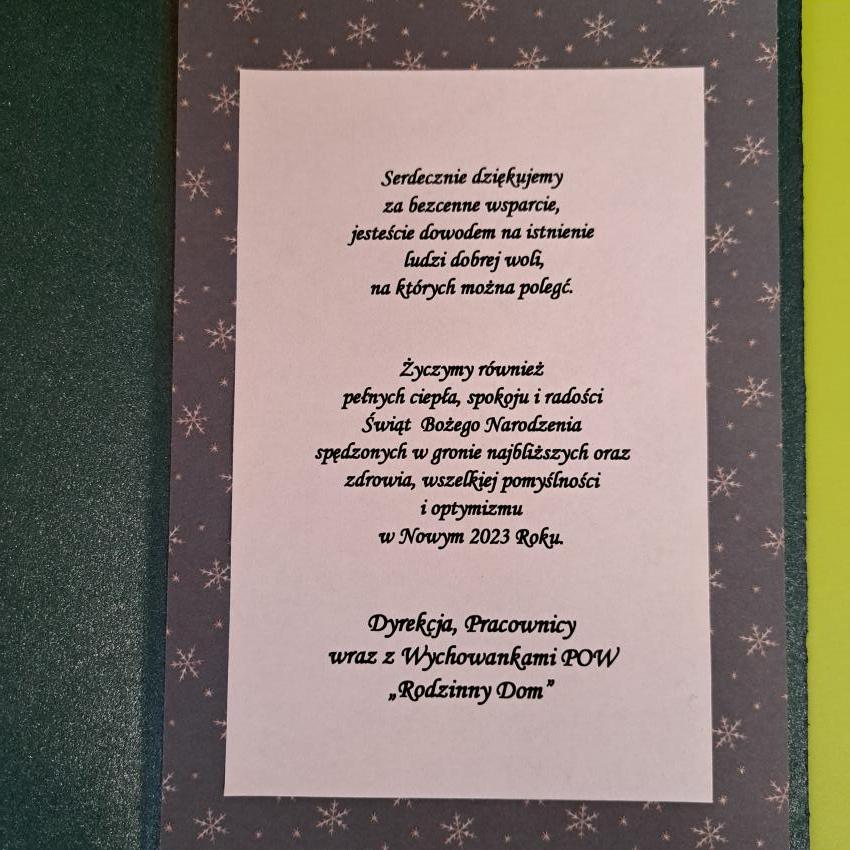 Serdecznie dziękujemy
za bezcenne wsparcie,
jesteście dowodem na istnienie
ludzi dobrej woli,
na których można polegć.
Życzymy również
pełnych ciepła, spokoju i radości
Świąt Bożego Narodzenia
spędzonych w gronie najbliższych oraz
zdrowia, wszelkiej pomyślności
i optymizmu
w Nowym 2023 Roku.
Dyrekcja, Pracownicy
wraz z Wychowankami POW
„Rodzinny Dom”